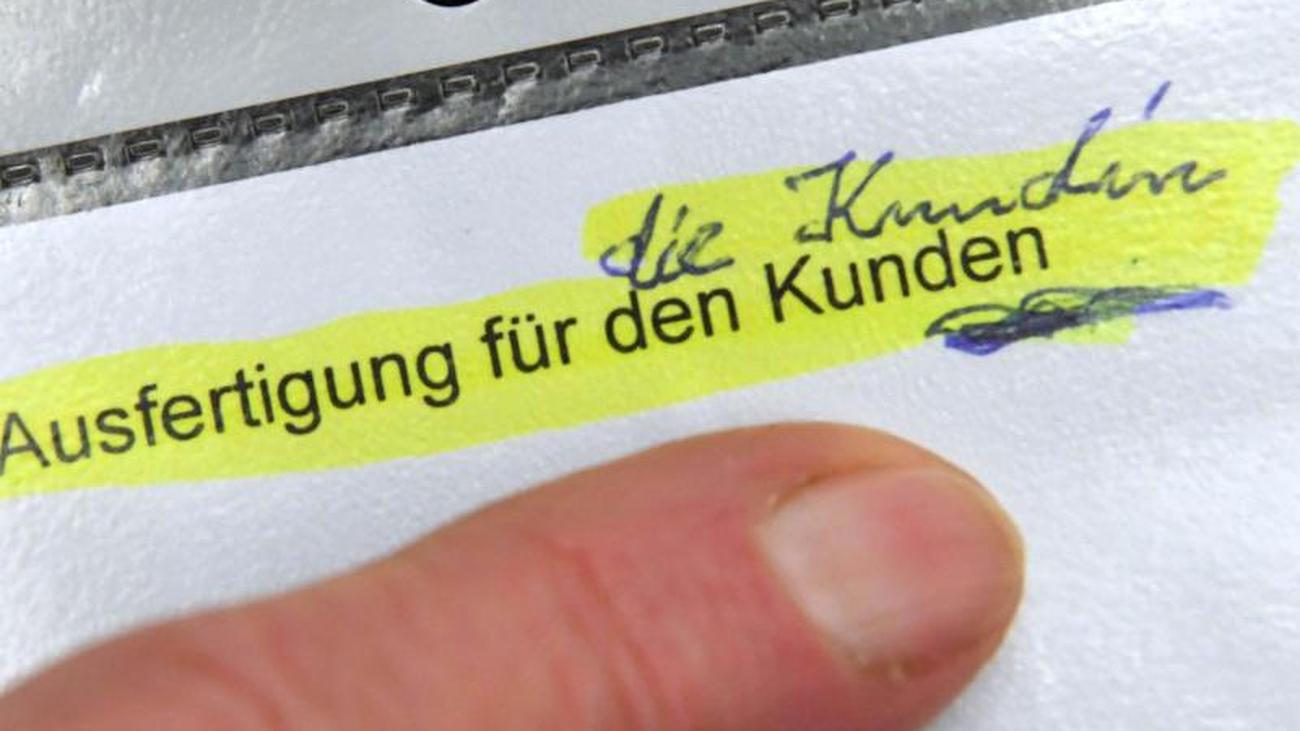 die Kundin
Ausfertigung für den Kunden